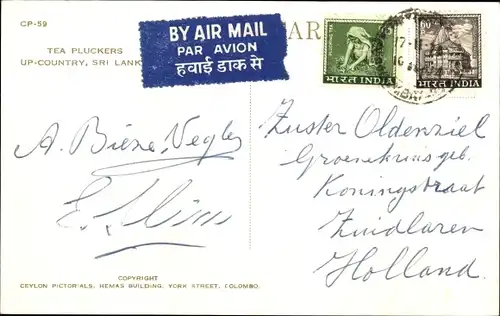 CP-59
TEA PLUCKERS
UP-COUNTRY, SRI LANK
BY AIR MAIL
PAR AVION
हवाई डाक से
CARD
भारत INDIA
60
भारत INDIA
A. Biene. Vegler
Zuster Oldenziel
Groenekruisgeb.
Koningstraat
Zuidlaren
Holland.
COPYRIGHT
CEYLON PICTORIALS, HEMAS BUILDING, YORK STREET, COLOMBO.